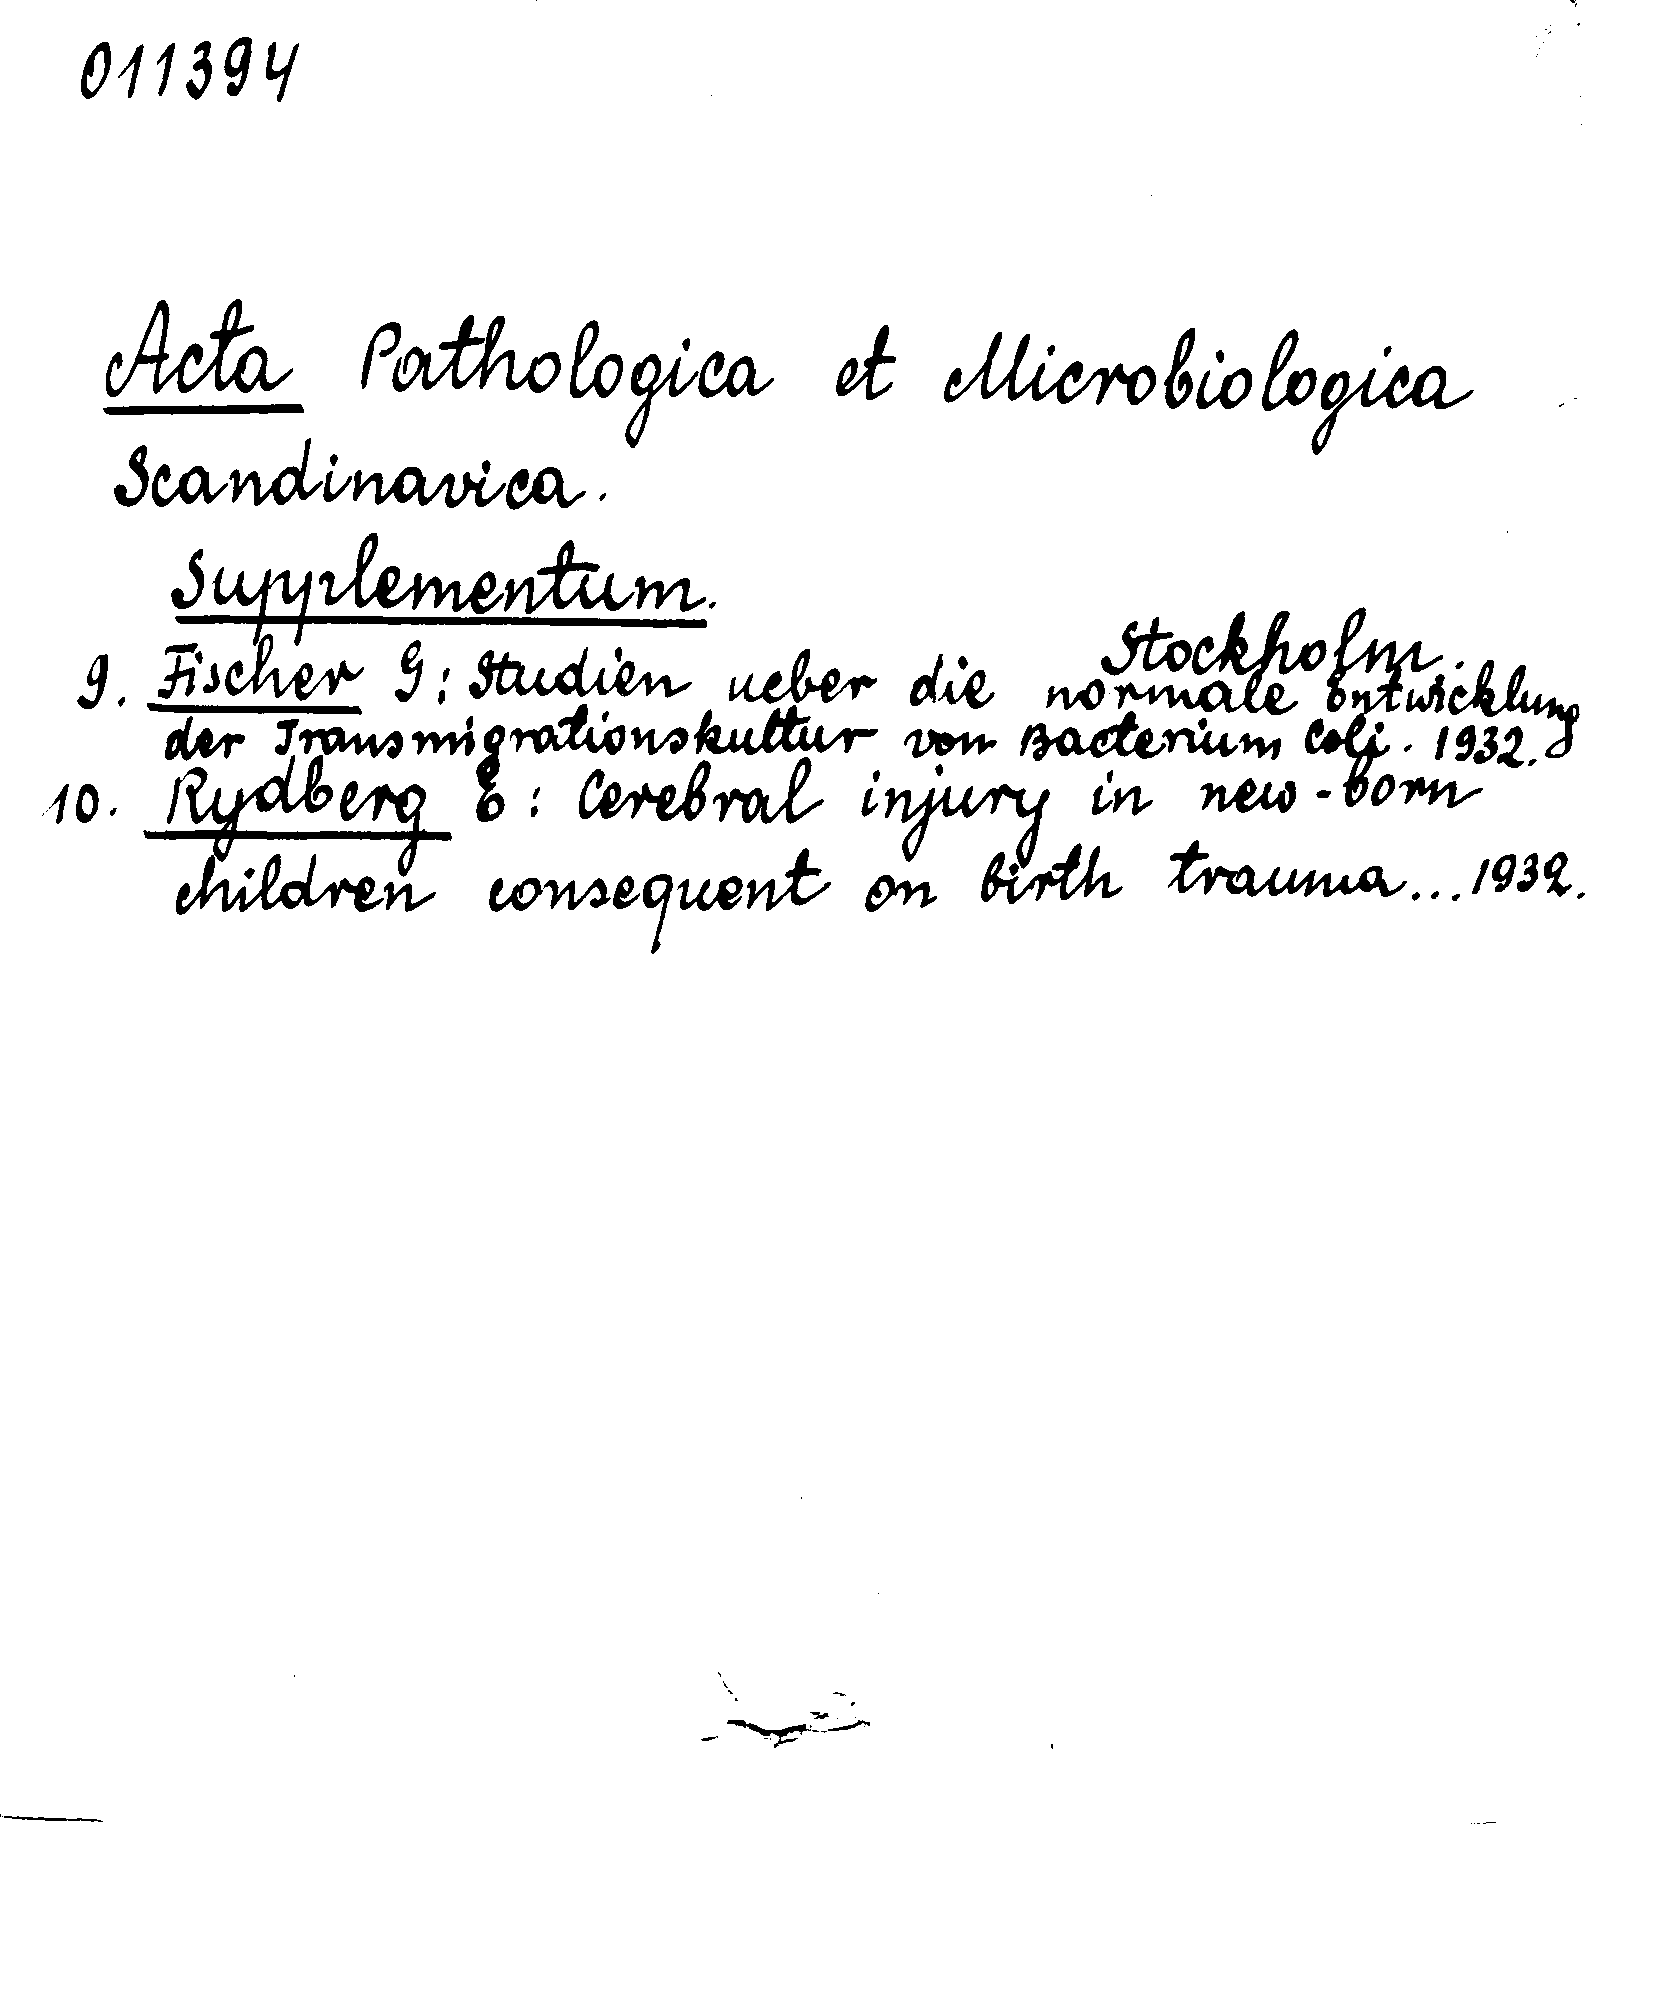 011394
Acta Pathologica et Microbiologica
Scandinavica.
Supplementum.
Stockholm.
9. Fischer G: Studien ueber die normale Entwicklung
der Transmigrationskultur von Bacterium Coli. 1932.
10. Rydberg E: Cerebral injury in new-born
children consequent on birth trauma... 1932.